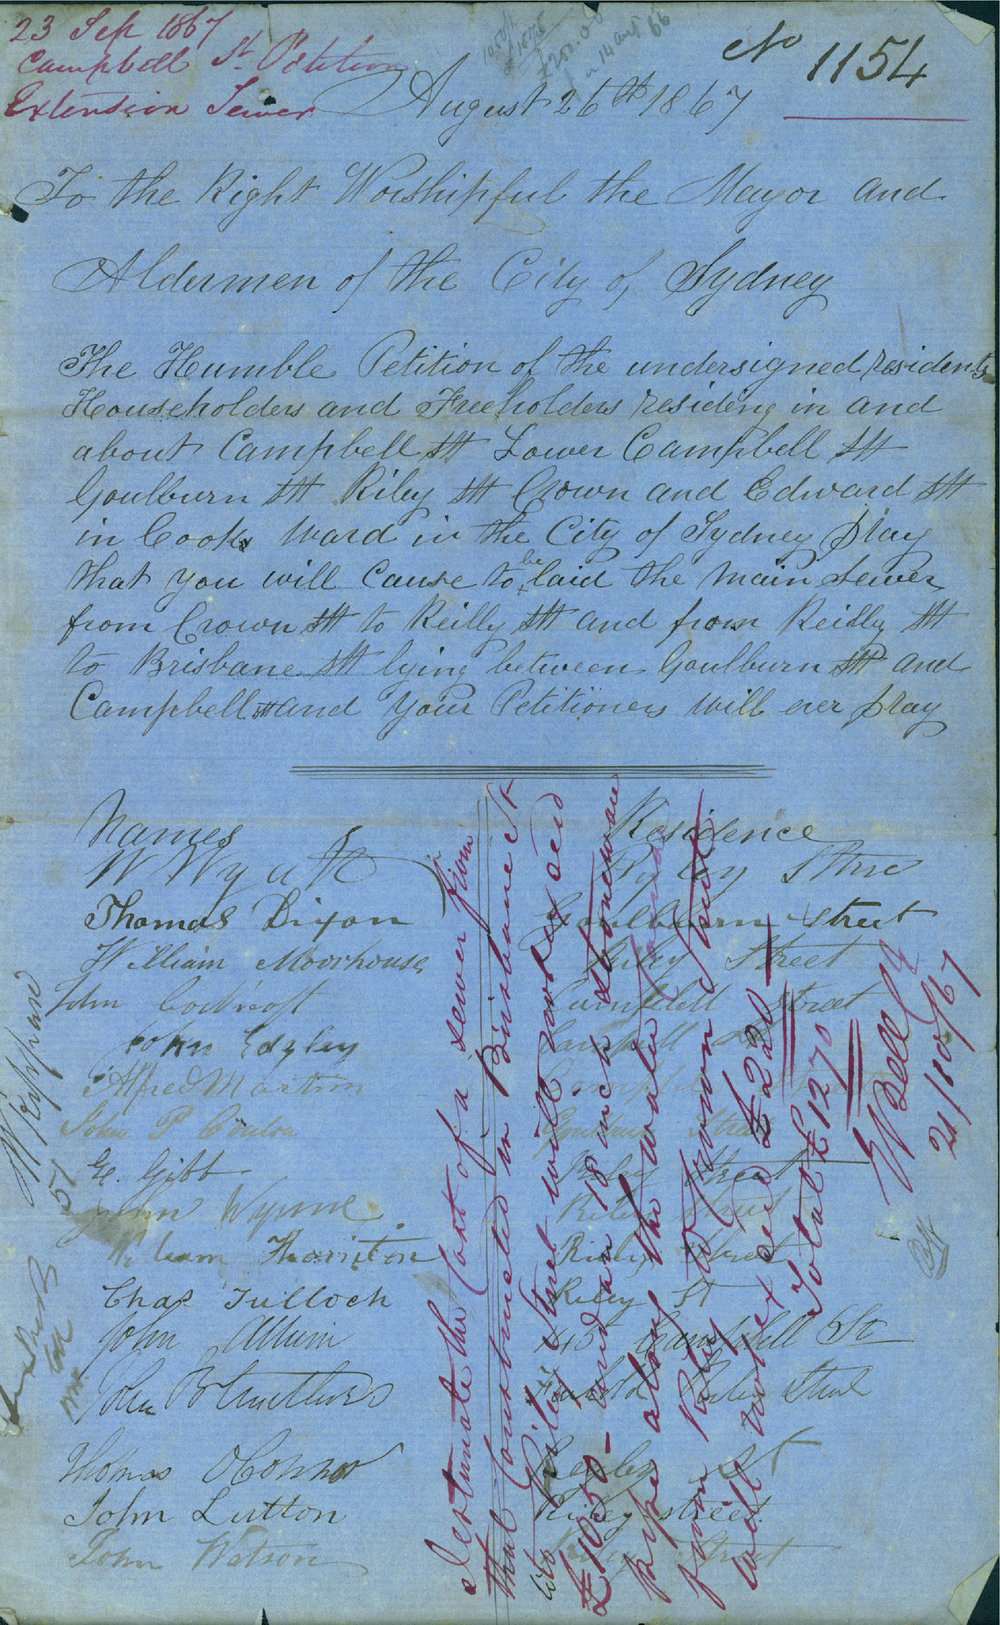 23 Sep 1867
Campbell St. Petition
Extension Sewer
No 1154
August 26th 1867
To the Right Worshipful the Mayor and
Aldermen of the City of Sydney
The Humble Petition of the undersigned residents
Householders and Freeholders residing in and
about Campbell St Lower Campbell St
Goulburn St Riley St Crown and Edward St
in Cooks Ward in the City of Sydney pray
that you will cause to be laid the main sewer
from Crown St to Reilly St and from Reilly St
to Brisbane St lying between Goulburn St and
Campbell St and your Petitioners will ever pray
Names Residence
W Wyatt Ryley Street
Thomas Dixon Goulbourn Street
William Moorhouse Riley Street
John Cowcroft Campbell Street
John Edgley Campbell St
Alfred Martin Campbell Street
John P Street
G. Gibb Riley Street
John Wynne Riley Street
William Thornton Riley Street
Chas Tulloch Riley St
John Allum 145 Campbell St
John Riley Street
Thomas OConnor Reiley St
John Lutton Riley street
John Watson Riley Street
I estimate the Cost of a sewer from
that constructed in Brisbane St
to Riley Street will not exceed
£1050 - and an 18 inch stoneware
pipe along the water
from Riley to Crown Street
will not exceed £220 -
Total £1270
W Bell
21/10/67